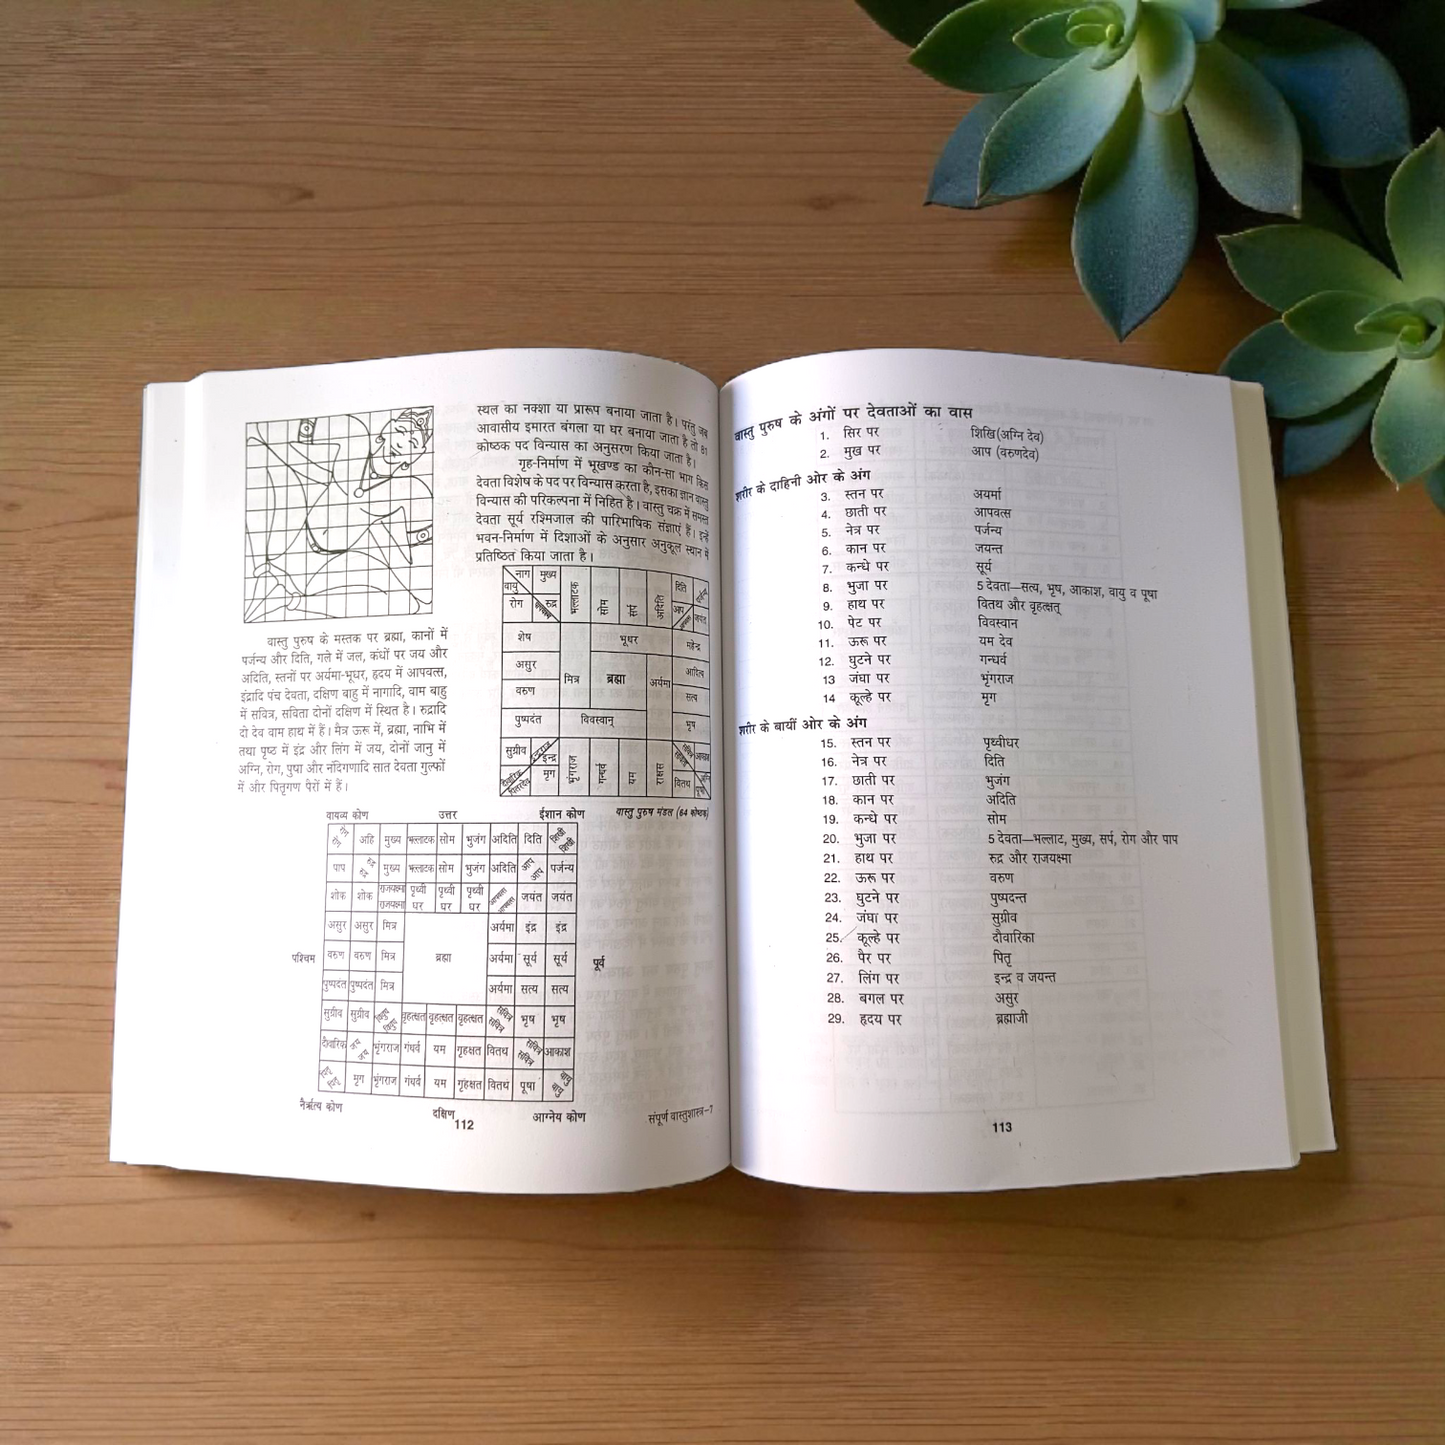 स्थल का नक्शा या प्रारूप बनाया जाता है। परंतु जब
आवासीय इमारत बंगला या घर बनाया जाता है तो 81
कोष्ठक पद विन्यास का अनुसरण किया जाता है।
गृह-निर्माण में भूखण्ड का कौन-सा भाग किस
देवता विशेष के पद पर विन्यास करता है, इसका ज्ञान वास्तु
विन्यास की परिकल्पना में निहित है। वास्तु चक्र में समस्त
देवता सूर्य रश्मिजाल की पारिभाषिक संज्ञाएं हैं। इन्हें
भवन-निर्माण में दिशाओं के अनुसार अनुकूल स्थान में
प्रतिष्ठित किया जाता है।
वास्तु पुरुष के मस्तक पर ब्रह्मा, कानों में
पर्जन्य और दिति, गले में जल, कंधों पर जय और
अदिति, स्तनों पर अर्यमा-भूधर, हृदय में आपवत्स,
इंद्रादि पंच देवता, दक्षिण बाहु में नागादि, वाम बाहु
में सवित्र, सविता दोनों दक्षिण में स्थित है। रुद्रादि
दो देव वाम हाथ में हैं। मैत्र ऊरू में, ब्रह्मा, नाभि में
तथा पृष्ठ में इंद्र और लिंग में जय, दोनों जानु में
अग्नि, रोग, पुषा और नंदिगणादि सात देवता गुल्फों
में और पितृगण पैरों में हैं।
नाग मुख्य भल्लाटक सोम सर्प अदिति दिति
वायु
रोग रुद्र आप जयंत
शेष भूधर महेन्द्र
असुर मित्र ब्रह्मा अर्यमा आदित्य
वरुण सत्य
पुष्पदंत विवस्वान् भृष
सुग्रीव इन्द्र भृंगराज गन्धर्व यम राक्षस आकाश
मृग वितथ पूषा
वास्तु पुरुष मंडल (64 कोष्ठक)
वायव्य कोण उत्तर ईशान कोण
रोग रोग अहि मुख्य भल्लाटक सोम भुजंग अदिति दिति शिखी शिखी
पाप रुद्र रुद्र मुख्य भल्लाटक सोम भुजंग अदिति आप आप पर्जन्य
शोक शोक राजयक्ष्मा राजयक्ष्मा पृथ्वी धर पृथ्वी धर पृथ्वी धर आपवत्स आपवत्स जयंत जयंत
असुर असुर मित्र अर्यमा इंद्र इंद्र
पश्चिम वरुण वरुण मित्र ब्रह्मा अर्यमा सूर्य सूर्य पूर्व
पुष्पदंत पुष्पदंत मित्र अर्यमा सत्य सत्य
सुग्रीव सुग्रीव वृहत्क्षत वृहत्क्षत वृहत्क्षत सवित्र सवित्र भृष भृष
दौवारिक जय जय भृंगराज गंधर्व यम गृहक्षत वितथ सवित्र सवित्र आकाश
मृग भृंगराज गंधर्व यम गृहक्षत वितथ पूषा वायु वायु
नैर्ऋत्य कोण दक्षिण आग्नेय कोण
112
संपूर्ण वास्तुशास्त्र–7
वास्तु पुरुष के अंगों पर देवताओं का वास
1. सिर पर शिखि(अग्नि देव)
2. मुख पर आप (वरुणदेव)
शरीर के दाहिनी ओर के अंग
3. स्तन पर अयर्मा
4. छाती पर आपवत्स
5. नेत्र पर पर्जन्य
6. कान पर जयन्त
7. कन्धे पर सूर्य
8. भुजा पर 5 देवता—सत्य, भृष, आकाश, वायु व पूषा
9. हाथ पर वितथ और वृहत्क्षत्
10. पेट पर विवस्वान
11. ऊरू पर यम देव
12. घुटने पर गन्धर्व
13 जंघा पर भृंगराज
14 कूल्हे पर मृग
शरीर के बायीं ओर के अंग
15. स्तन पर पृथ्वीधर
16. नेत्र पर दिति
17. छाती पर भुजंग
18. कान पर अदिति
19. कन्धे पर सोम
20. भुजा पर 5 देवता—भल्लाट, मुख्य, सर्प, रोग और पाप
21. हाथ पर रुद्र और राजयक्ष्मा
22. ऊरू पर वरुण
23. घुटने पर पुष्पदन्त
24. जंघा पर सुग्रीव
25. कूल्हे पर दौवारिका
26. पैर पर पितृ
27. लिंग पर इन्द्र व जयन्त
28. बगल पर असुर
29. हृदय पर ब्रह्माजी
113